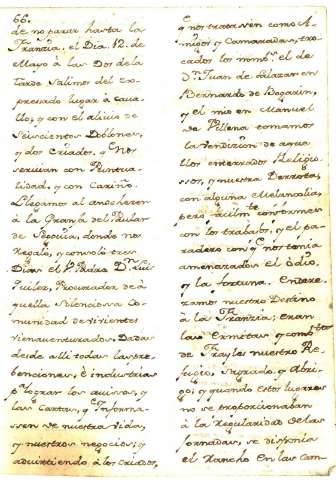 66.
de no parar hasta la
Franzia. el Dia 12. de
Mayo à las Dos de la
tarde salimos del ex-
presado lugar à caua-
llo, y con el aliuio de
seiscientos Doblones,
y dos Criados, q nos
seruian con Puntua-
lidad, y con Cariño.
Llegamos al anochezer
à la Granja del Paular
de Segouia, donde nos
Regalò, y consolò tres
Dias el P. Padre Dn. Luis
Quilez, Procurador de a-
quella silenciosa Co-
munidad de viuientes
vienauenturados. Dadas
desde alli todas las pre-
benciones, è industrias
pa. lograr los auissos, y
las Cartas, q Informa-
ssen de nuestra vida,
y nuestros negocios; y
aduirtiendo à los Criados,
q nos tratassen como A-
migos y Camaradas, tro-
cados los nombs. el de
Dn. Juan de Salazar en
Bernardo de Bogarin,
y el mio en Manuel
de Villena tomamos
la vendizion de aque-
llos enterrados Religio-
ssos, y nuestra Derrota,
con alguna Melancolia,
pero facilmte. conformes
con los trabajos, y el pa-
radero con q nos tenia
amenazados el odio,
y la fortuna. Endere-
zamos nuestro Destino
à la Franzia; eran
las Ermitas y combtos.
de frayles nuestro Re-
fugio, sagrado, y Abri-
go; y quando estos lugares
no se proporcionaban
à la Regularidad de las
jornadas, se disponia
el Rancho en las Cam-